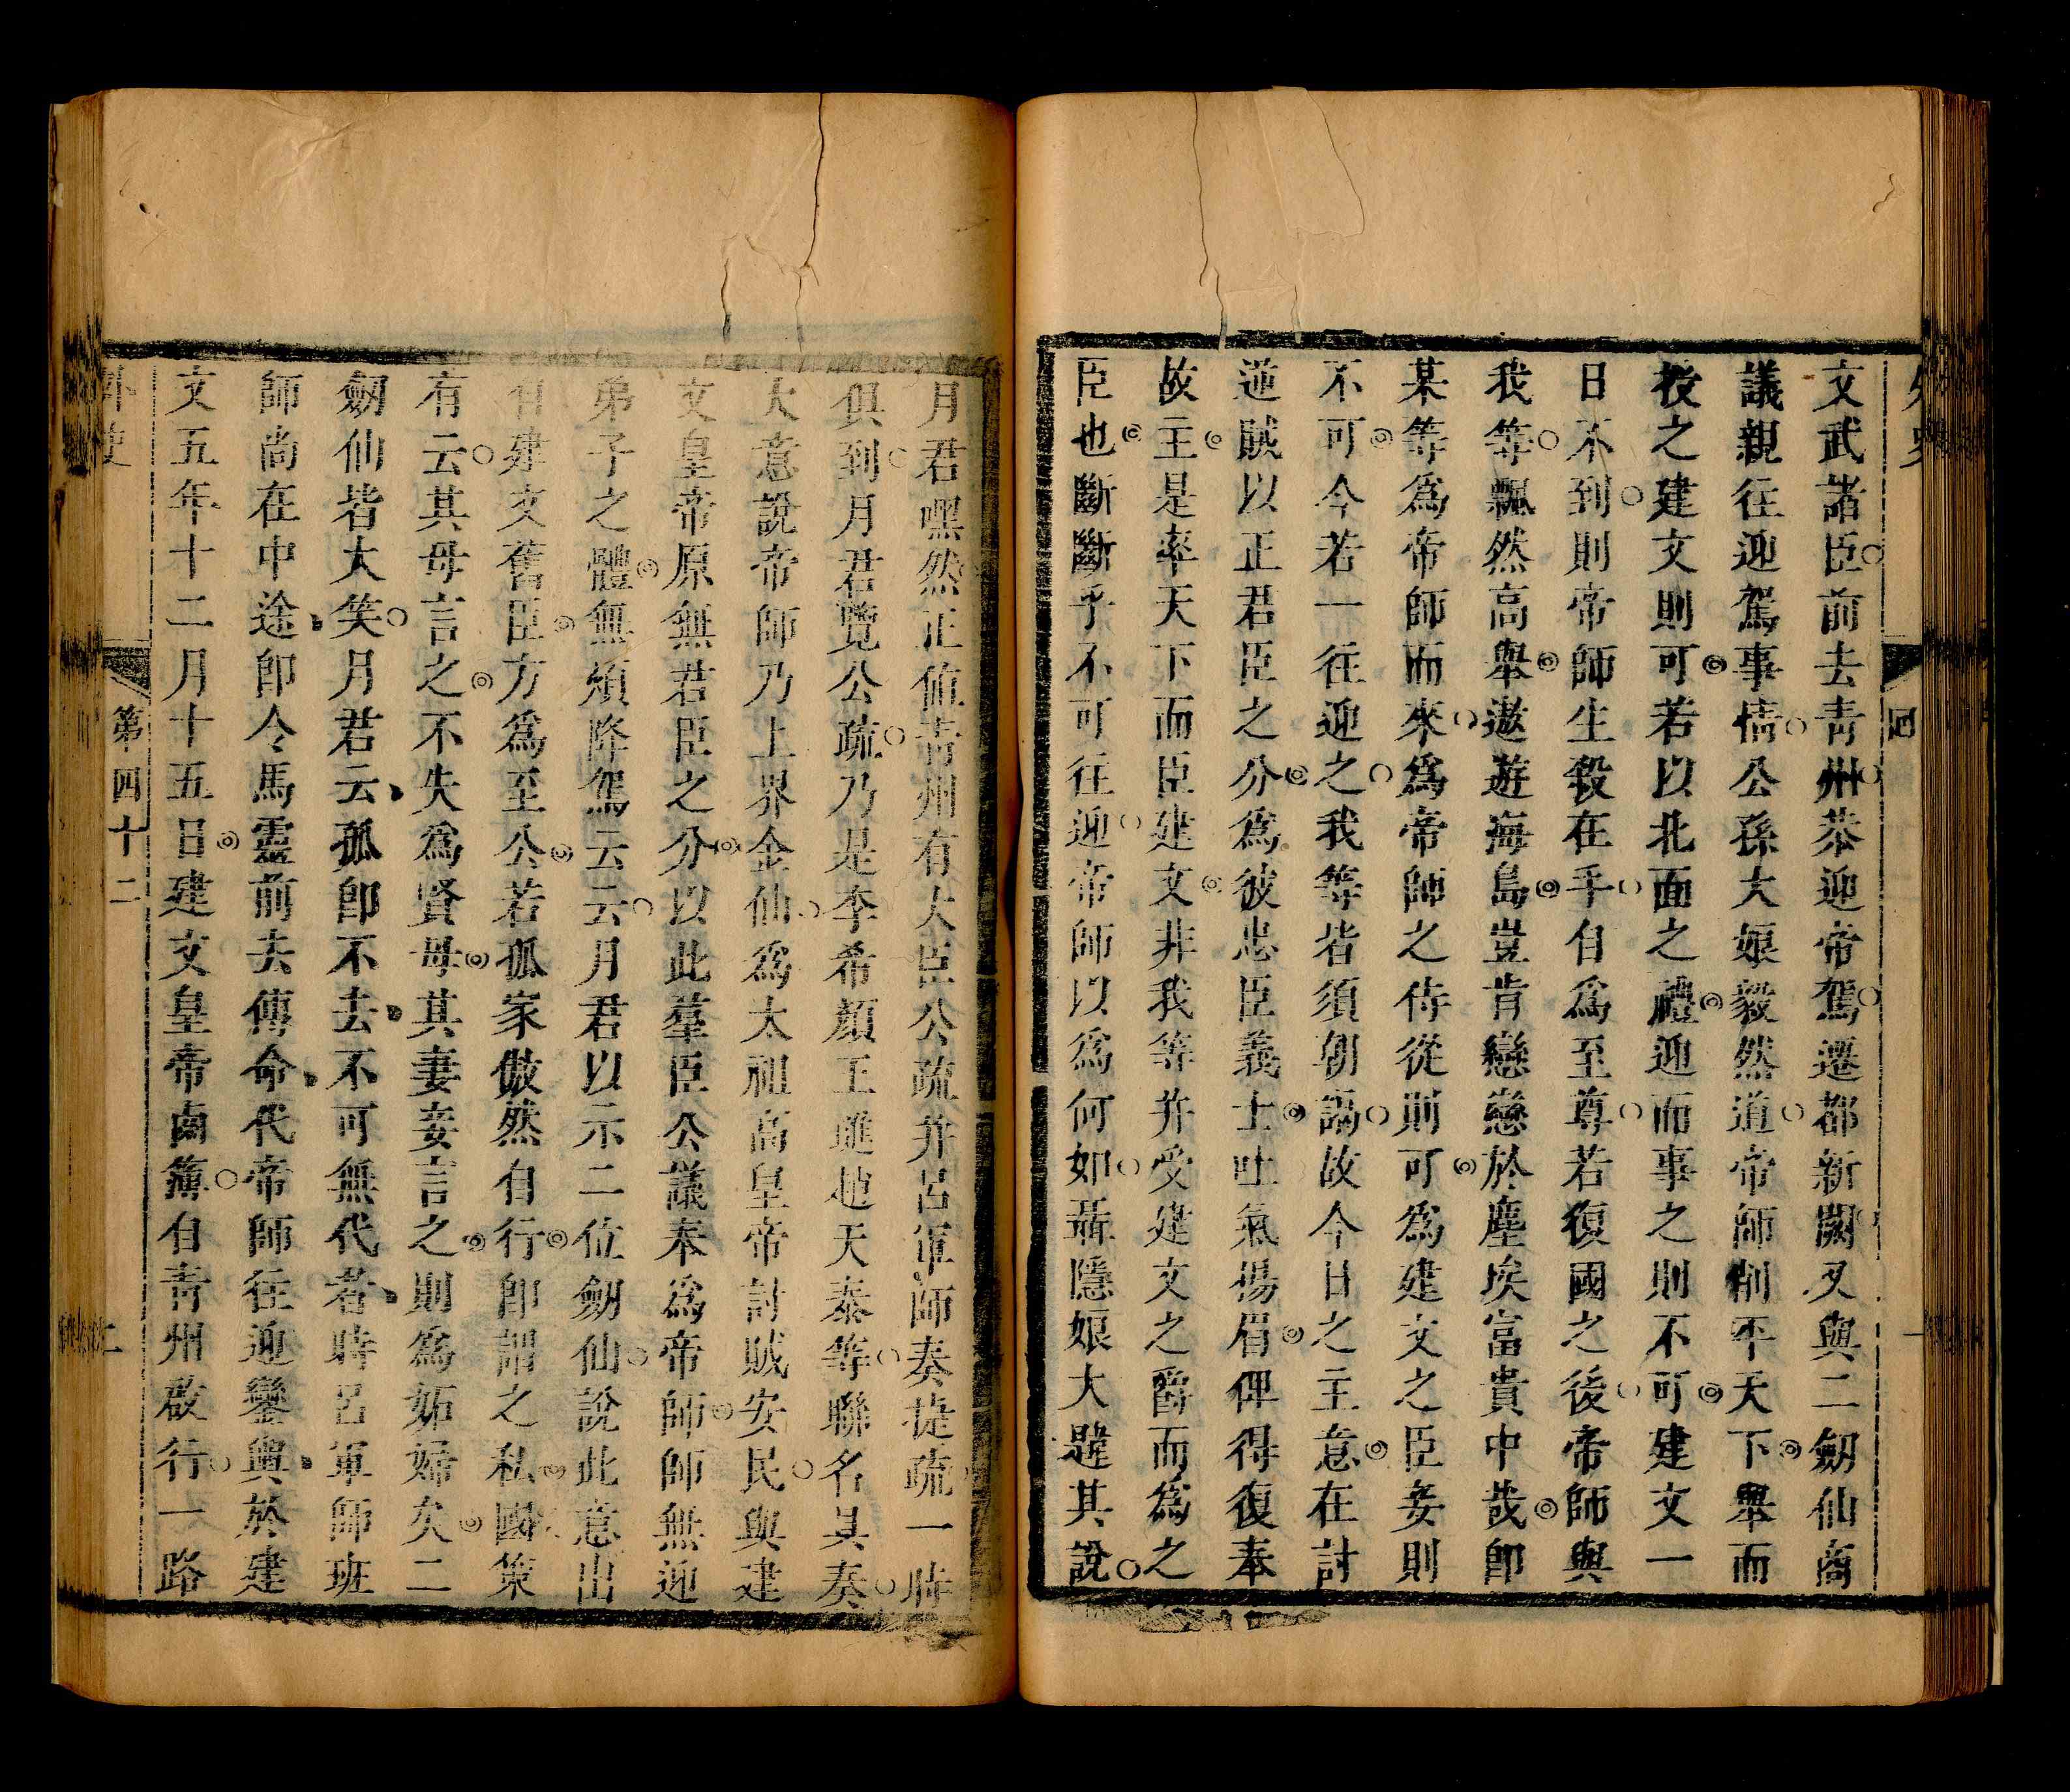 文武諸臣前去青州恭迎帝駕遷都新闕又與二劒仙商
議親往迎駕事情公孫大娘毅然道帝師削平天下舉而
授之建文則可若以北面之禮迎而事之則不可建文一
日不到則帝師生殺在手自爲至尊若復國之後帝師與
我等飄然高舉遨遊海島豈肯戀戀於塵埃富貴中哉卽
某等爲帝師而來爲帝師之侍從則可爲建文之臣妾則
不可今若一往迎之我等皆須朝謁故今日之主意在討
逆賊以正君臣之分爲彼忠臣義士吐氣揚眉俾得復奉
故主是率天下而臣建文非我等并受建文之爵而爲之
臣也斷斷乎不可往迎帝師以爲何如聶隱娘大韙其說
月君嘿然正値青州有大臣公疏并呂軍師奏捷疏一時
俱到月君覽公疏乃是李希顏王璡趙天泰等聯名具奏
大意說帝師乃上界金仙爲太祖高皇帝討賊安民與建
文皇帝原無君臣之分以此羣臣公議奉爲帝師師無迎
弟子之體無煩降駕云云月君以示二位劒仙說此意出
自建文舊臣方爲至公若孤家倣然自行卽謂之私國策
有云其母言之不失爲賢母其妻妾言之則爲妬婦矣二
劒仙皆大笑月君云孤卽不去不可無代者時呂軍師班
師尚在中途卽令馬靈前去傳命代帝師往迎鑾輿於建
文五年十二月十五日建文皇帝鹵簿自青州啟行一路
外史
第四十二
二